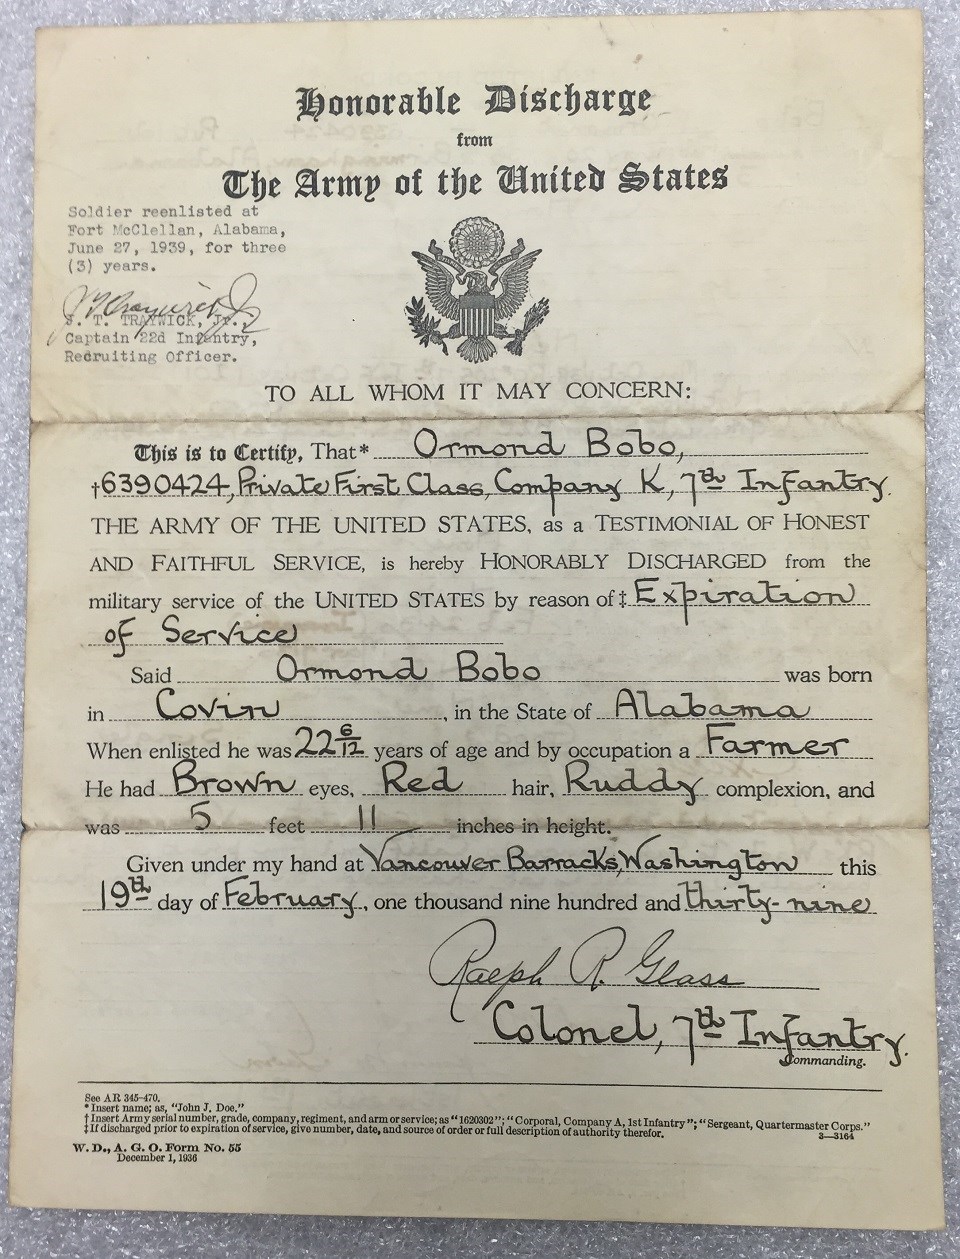 Honorable Discharge
from
The Army of the United States
Soldier reenlisted at
Fort McClellan, Alabama,
June 27, 1939, for three
(3) years.
S. T. TRAYWICK, Jr.,
Captain 22d Infantry,
Recruiting Officer.
TO ALL WHOM IT MAY CONCERN:
This is to Certify, That* Ormond Bobo,
†6390424, Private First Class, Company K, 7th Infantry.
THE ARMY OF THE UNITED STATES, as a TESTIMONIAL OF HONEST
AND FAITHFUL SERVICE, is hereby HONORABLY DISCHARGED from the
military service of the UNITED STATES by reason of‡ Expiration
of Service
Said Ormond Bobo was born
in Covin, in the State of Alabama
When enlisted he was 22 6/12 years of age and by occupation a Farmer
He had Brown eyes, Red hair, Ruddy complexion, and
was 5 feet 11 inches in height.
Given under my hand at Vancouver Barracks, Washington this
19th day of February, one thousand nine hundred and thirty-nine
Ralph R. Glass
Colonel, 7th Infantry.
Commanding.
See AR 345-470.
*Insert name; as, "John J. Doe."
†Insert Army serial number, grade, company, regiment, and arm or service; as "1620302"; "Corporal, Company A, 1st Infantry"; "Sergeant, Quartermaster Corps."
‡If discharged prior to expiration of service, give number, date, and source of order or full description of authority therefor.
3—3164
W. D., A. G. O. Form No. 55
December 1, 1936